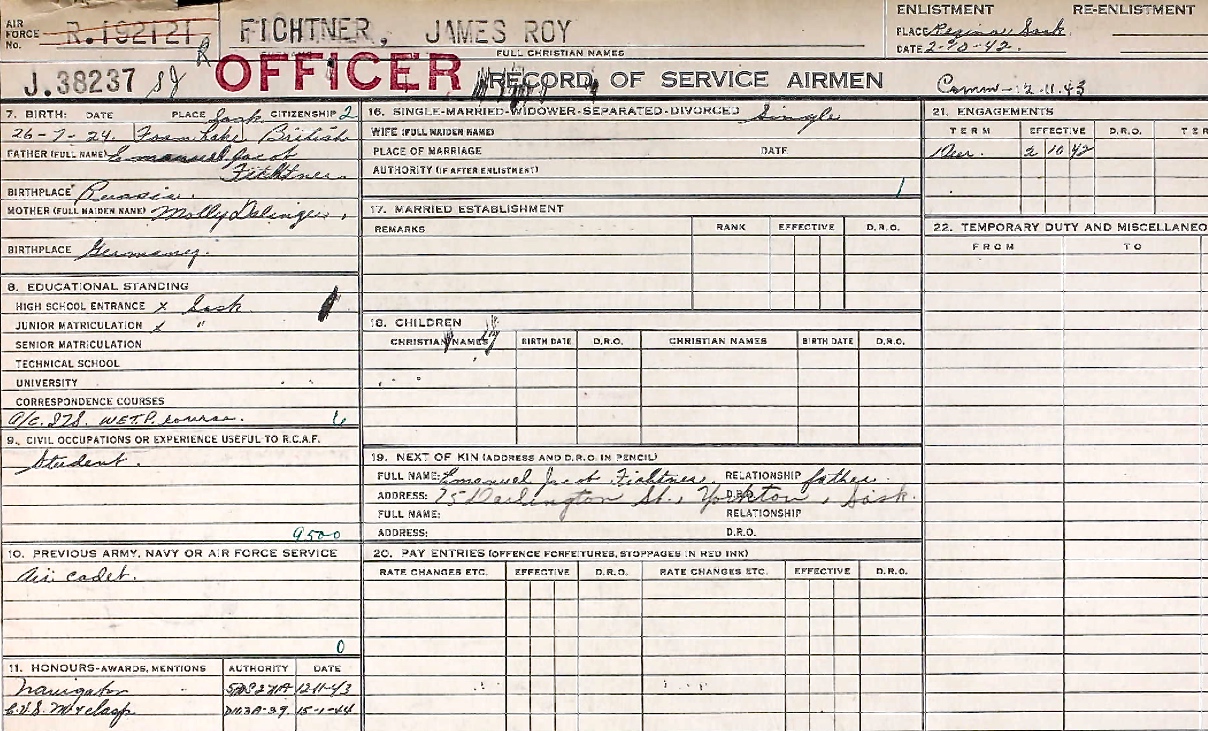 AIR FORCE No. R.192121 FICHTNER, JAMES ROY
SURNAME FULL CHRISTIAN NAMES
ENLISTMENT RE-ENLISTMENT
PLACE Regina Sask.
DATE 2-10-42.
J.38237 OFFICER RECORD OF SERVICE AIRMEN Comm-12.11.43
7. BIRTH: DATE PLACE Sask CITIZENSHIP 2
26-7-24. Foam Lake British
FATHER (FULL NAME) Emanuel Jacob
Fichtner.
BIRTHPLACE Russia.
MOTHER (FULL MAIDEN NAME) Molly
BIRTHPLACE Germany.
8. EDUCATIONAL STANDING
HIGH SCHOOL ENTRANCE x Sask.
JUNIOR MATRICULATION x "
SENIOR MATRICULATION
TECHNICAL SCHOOL
UNIVERSITY
CORRESPONDENCE COURSES
W.E.T.P. course.
9. CIVIL OCCUPATIONS OR EXPERIENCE USEFUL TO R.C.A.F.
Student.
9500
10. PREVIOUS ARMY, NAVY OR AIR FORCE SERVICE
Air cadet.
0
11. HONOURS-AWARDS, MENTIONS AUTHORITY DATE
Navigator 12-11-43
C.V.S.M & clasp 15-1-44
16. SINGLE-MARRIED-WIDOWER-SEPARATED-DIVORCED Single
WIFE (FULL MAIDEN NAME)
PLACE OF MARRIAGE DATE
AUTHORITY (IF AFTER ENLISTMENT)
1
17. MARRIED ESTABLISHMENT
REMARKS RANK EFFECTIVE D.R.O.
18. CHILDREN
CHRISTIAN NAMES BIRTH DATE D.R.O. CHRISTIAN NAMES BIRTH DATE D.R.O.
19. NEXT OF KIN (ADDRESS AND D.R.O. IN PENCIL)
FULL NAME: Emanuel Jacob Fichtner. RELATIONSHIP father.
ADDRESS: 75 Darlington St., Yorkton, Sask. D.R.O.
FULL NAME: RELATIONSHIP
ADDRESS: D.R.O.
20. PAY ENTRIES (OFFENCE FORFEITURES, STOPPAGES IN RED INK)
RATE CHANGES ETC. EFFECTIVE D.R.O. RATE CHANGES ETC. EFFECTIVE D.R.O.
21. ENGAGEMENTS
TERM EFFECTIVE D.R.O. TER
2 10 42
22. TEMPORARY DUTY AND MISCELLANEO
FROM TO